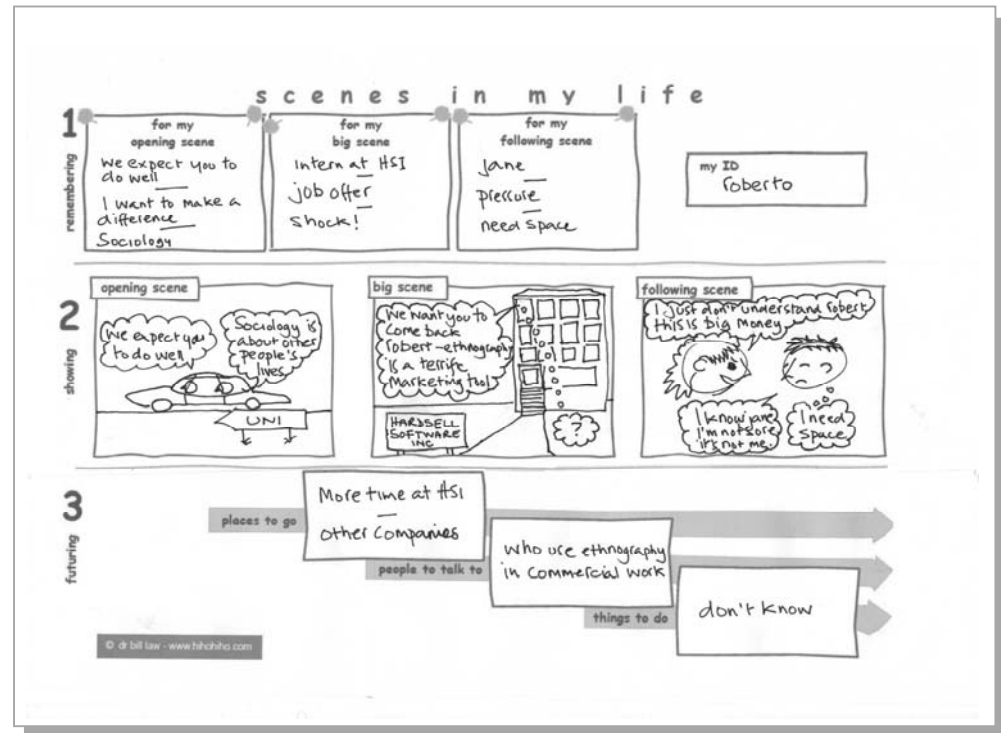 scenes in my life
1
remembering
for my
opening scene
we expect you to
do well
I want to make a
difference
Sociology
for my
big scene
intern at HSI
job offer
shock!
for my
following scene
Jane
pressure
need space
my ID
roberto
2
showing
opening scene
we expect you
to do well
Sociology is
about other
people's
lives
UNI
big scene
we want you to
come back
robert - ethnography
is a terrific
marketing tool
HARDSELL
SOFTWARE
INC
?
following scene
I just don't understand robert
this is big money
I know jane
I'm not sore
it's not me.
I need
space
3
futuring
places to go
More time at HSI
other companies
people to talk to
who use ethnography
in commercial work
things to do
don't know
© dr bill law - www.hihohiho.com